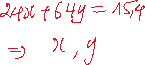 24x + 64y = 15,4
⇒ x, y